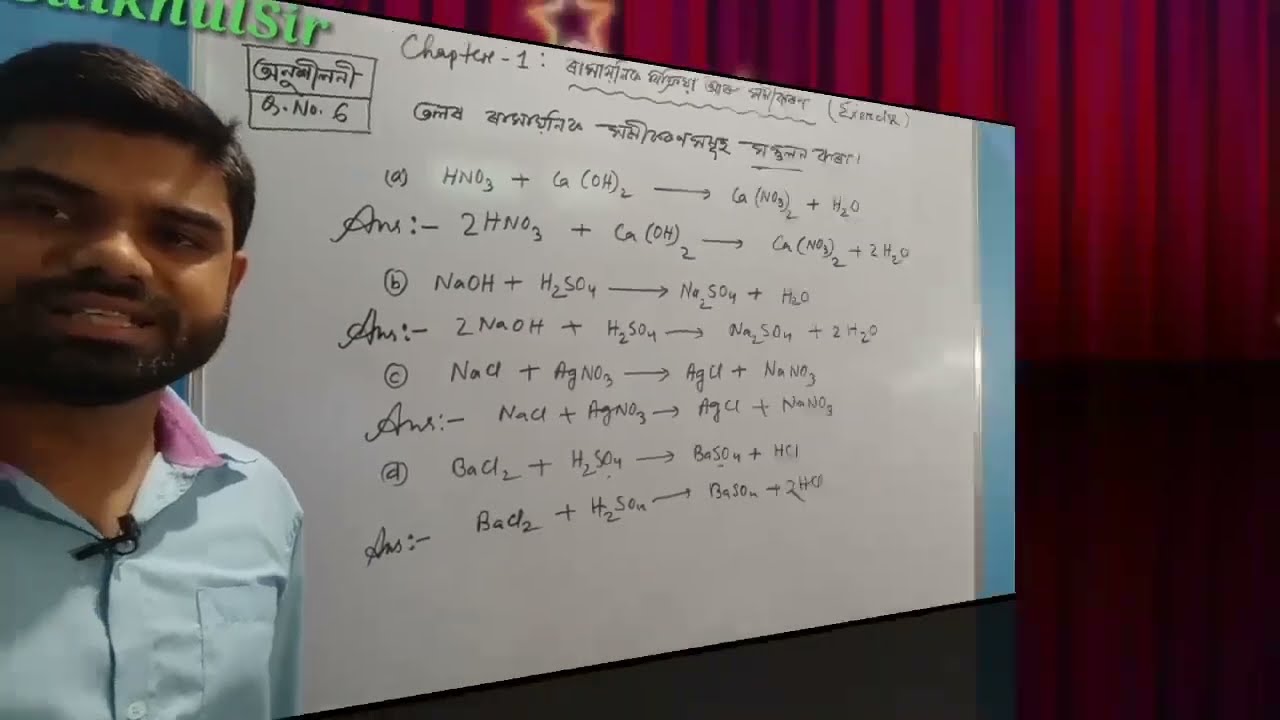 SaikhulSir
অনুশীলনী
Q. No. 6
Chapter - 1 : ৰাসায়নিক বিক্ৰিয়া আৰু সমীকৰণ (Exercise)
তলৰ ৰাসায়নিক সমীকৰণসমূহ সন্তুলন কৰা।
(a) HNO₃ + Ca(OH)₂ ⟶ Ca(NO₃)₂ + H₂O
Ans:- 2HNO₃ + Ca(OH)₂ ⟶ Ca(NO₃)₂ + 2H₂O
(b) NaOH + H₂SO₄ ⟶ Na₂SO₄ + H₂O
Ans:- 2NaOH + H₂SO₄ ⟶ Na₂SO₄ + 2H₂O
(c) NaCl + AgNO₃ ⟶ AgCl + NaNO₃
Ans:- NaCl + AgNO₃ ⟶ AgCl + NaNO₃
(d) BaCl₂ + H₂SO₄ ⟶ BaSO₄ + HCl
Ans:- BaCl₂ + H₂SO₄ ⟶ BaSO₄ + 2HCl